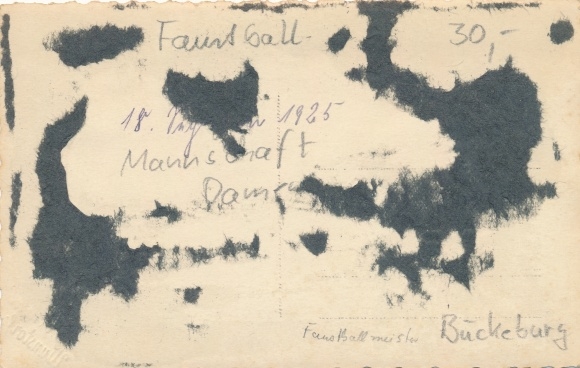 Faustball 30,-
18. 1925
Mannschaft
Damen
Faustballmeister Bückeburg